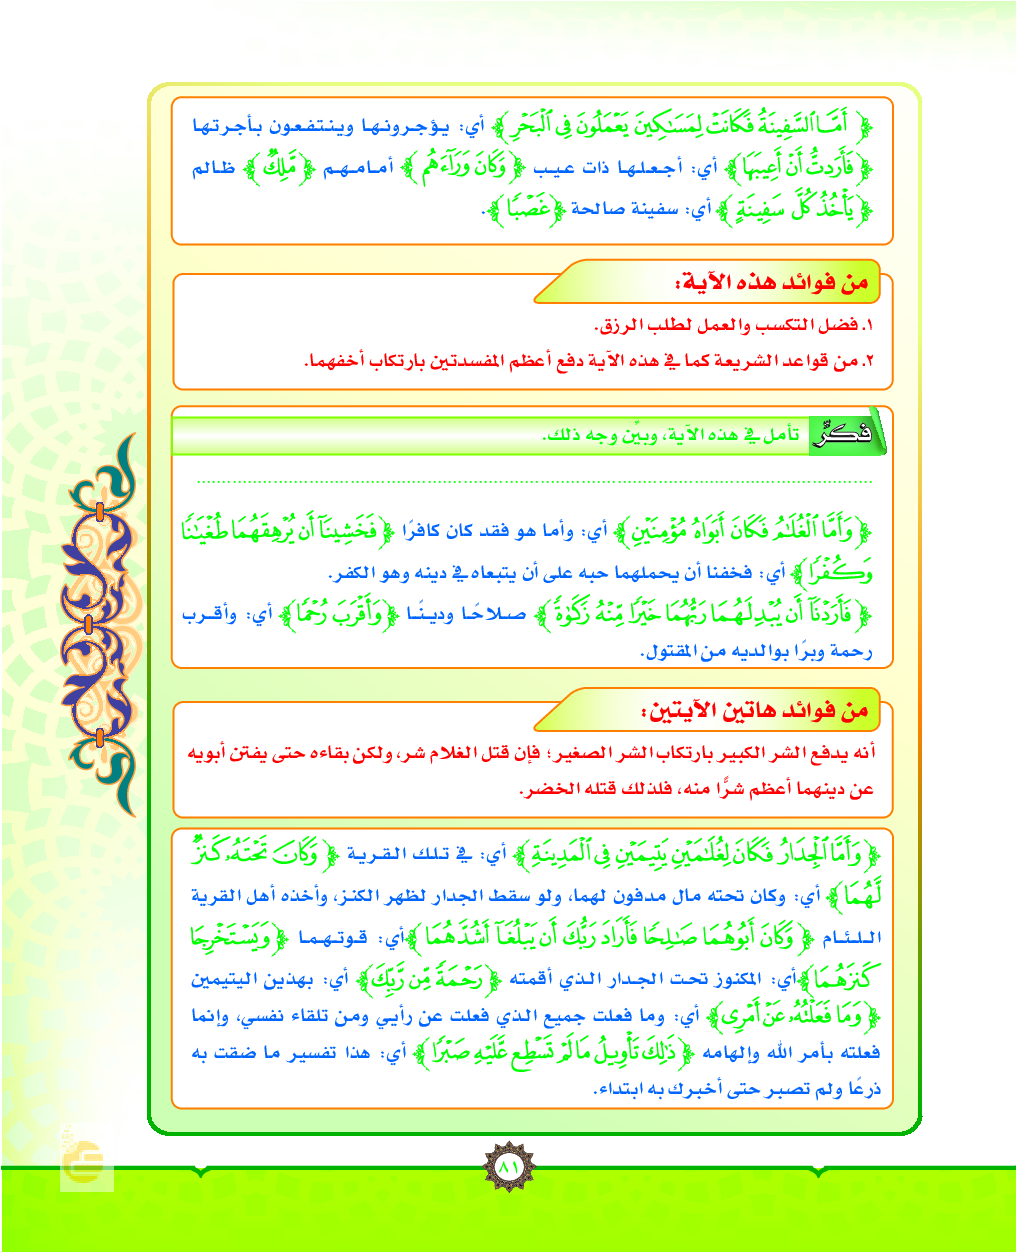 ﴿ أَمَّا ٱلسَّفِينَةُ فَكَانَتْ لِمَسَٰكِينَ يَعْمَلُونَ فِى ٱلْبَحْرِ ﴾ أي: يؤجرونها وينتفعون بأجرتها
﴿ فَأَرَدتُّ أَنْ أَعِيبَهَا ﴾ أي: أجعلها ذات عيب ﴿ وَكَانَ وَرَآءَهُم ﴾ أمامهم ﴿ مَّلِكٌ ﴾ ظالم
﴿ يَأْخُذُ كُلَّ سَفِينَةٍ ﴾ أي: سفينة صالحة ﴿ غَصْبًا ﴾.
من فوائد هذه الآية:
١. فضل التكسب والعمل لطلب الرزق.
٢. من قواعد الشريعة كما في هذه الآية دفع أعظم المفسدتين بارتكاب أخفهما.
فكّر تأمل في هذه الآية، وبيِّن وجه ذلك.
﴿ وَأَمَّا ٱلْغُلَٰمُ فَكَانَ أَبَوَاهُ مُؤْمِنَيْنِ ﴾ أي: وأما هو فقد كان كافرًا ﴿ فَخَشِينَآ أَن يُرْهِقَهُمَا طُغْيَٰنًا
وَكُفْرًا ﴾ أي: فخفنا أن يحملهما حبه على أن يتبعاه في دينه وهو الكفر.
﴿ فَأَرَدْنَآ أَن يُبْدِلَهُمَا رَبُّهُمَا خَيْرًا مِّنْهُ زَكَوٰةً ﴾ صلاحًا ودينًا ﴿ وَأَقْرَبَ رُحْمًا ﴾ أي: وأقرب
رحمة وبرًا بوالديه من المقتول.
من فوائد هاتين الآيتين:
أنه يدفع الشر الكبير بارتكاب الشر الصغير؛ فإن قتل الغلام شر، ولكن بقاءه حتى يفتن أبويه
عن دينهما أعظم شرًّا منه، فلذلك قتله الخضر.
﴿ وَأَمَّا ٱلْجِدَارُ فَكَانَ لِغُلَٰمَيْنِ يَتِيمَيْنِ فِى ٱلْمَدِينَةِ ﴾ أي: في تلك القرية ﴿ وَكَانَ تَحْتَهُۥ كَنزٌ
لَّهُمَا ﴾ أي: وكان تحته مال مدفون لهما، ولو سقط الجدار لظهر الكنز، وأخذه أهل القرية
اللئام ﴿ وَكَانَ أَبُوهُمَا صَٰلِحًا فَأَرَادَ رَبُّكَ أَن يَبْلُغَآ أَشُدَّهُمَا ﴾ أي: قوتهما ﴿ وَيَسْتَخْرِجَا
كَنزَهُمَا ﴾ أي: المكنوز تحت الجدار الذي أقمته ﴿ رَحْمَةً مِّن رَّبِّكَ ﴾ أي: بهذين اليتيمين
﴿ وَمَا فَعَلْتُهُۥ عَنْ أَمْرِى ﴾ أي: وما فعلت جميع الذي فعلت عن رأيي ومن تلقاء نفسي، وإنما
فعلته بأمر الله وإلهامه ﴿ ذَٰلِكَ تَأْوِيلُ مَا لَمْ تَسْطِع عَّلَيْهِ صَبْرًا ﴾ أي: هذا تفسير ما ضقت به
ذرعًا ولم تصبر حتى أخبرك به ابتداء.
٨١